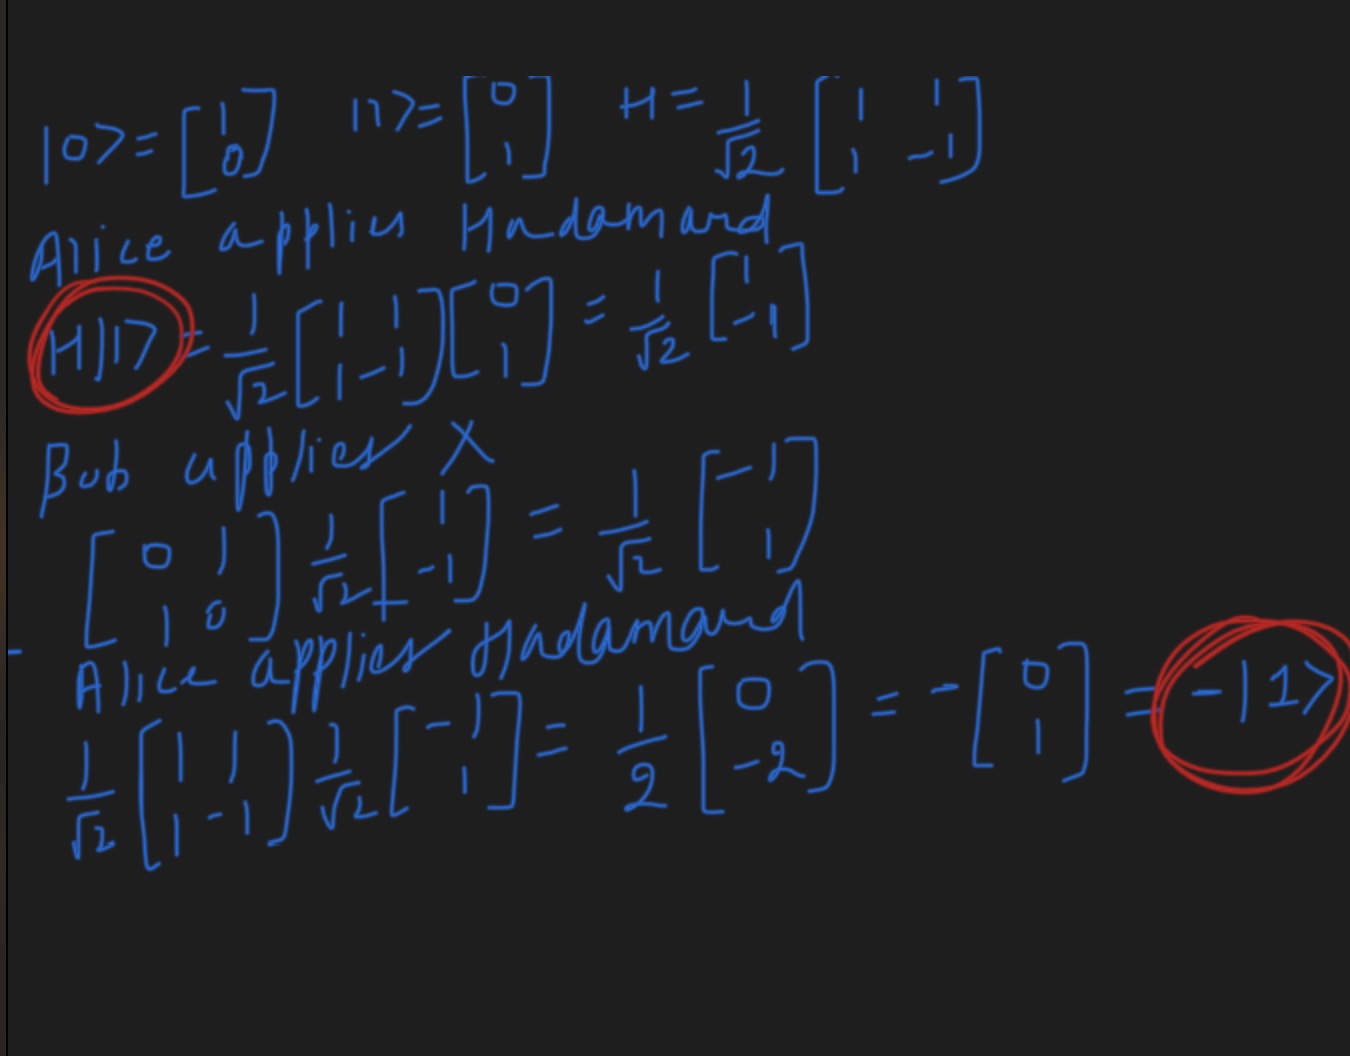 |0> = [1 0] |1> = [0 1] H = 1/√2 [1 1 1 -1]
Alice applies Hadamard
H|1> = 1/√2 [1 1 1 -1] [0 1] = 1/√2 [1 -1]
Bob applies X
[0 1 1 0] 1/√2 [1 -1] = 1/√2 [-1 1]
Alice applies Hadamard
1/√2 [1 1 1 -1] 1/√2 [-1 1] = 1/2 [0 -2] = -[0 1] = -|1>